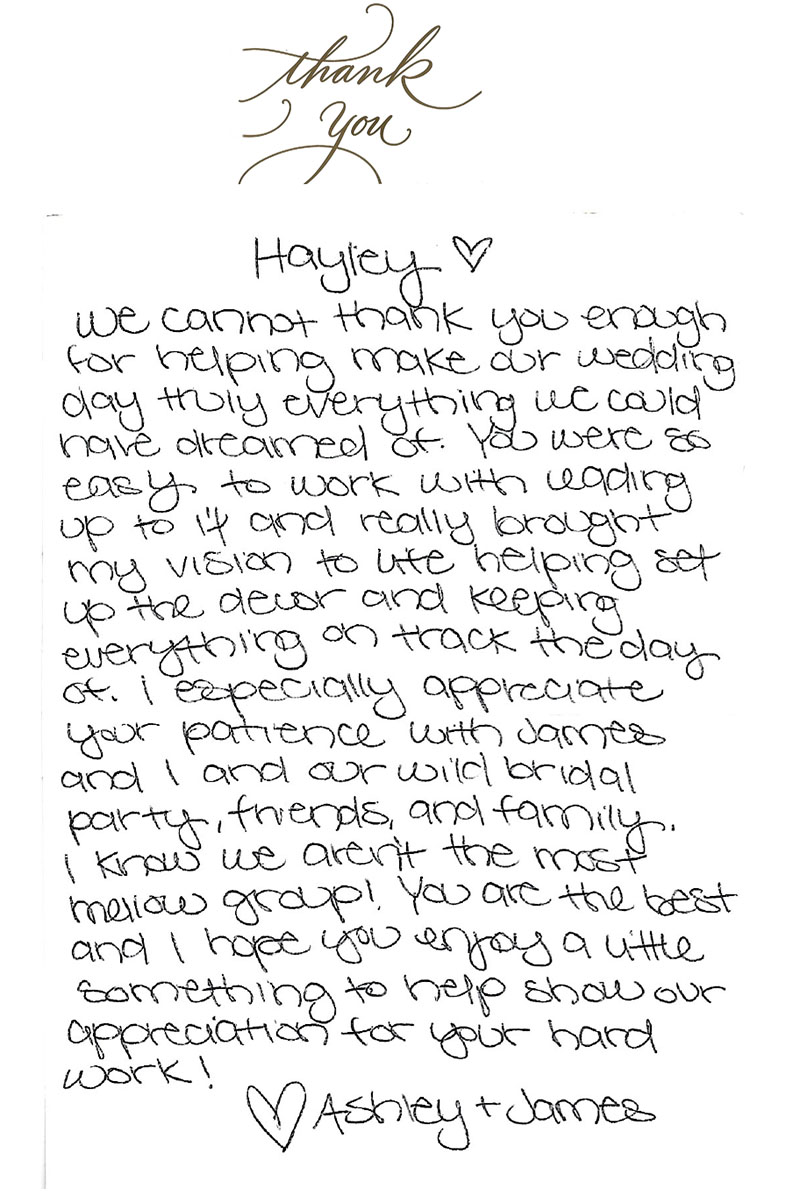 thank
you
Hayley ♡
we cannot thank you enough
for helping make our wedding
day truly everything we could
have dreamed of. You were so
easy to work with leading
up to it and really brought
my vision to life helping set
up the decor and keeping
everything on track the day
of. I especially appreciate
your patience with James
and I and our wild bridal
party, friends, and family.
I know we aren't the most
mellow group! You are the best
and I hope you enjoy a little
something to help show our
appreciation for your hard
work!
♡ Ashley + James